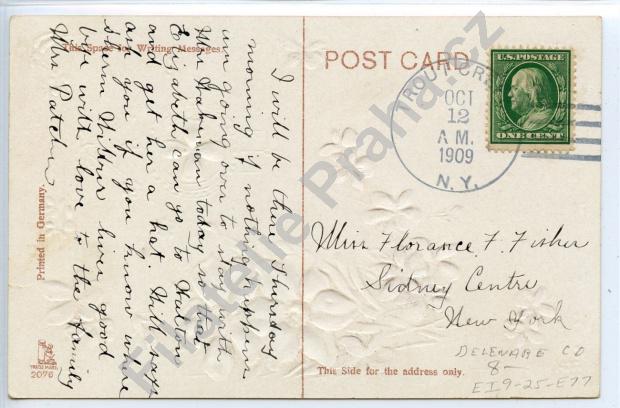 This Space for Writing Messages.
I will be there Thursday
morning if nothing happens
am going over to stay with
Mrs today so that
Elizabeth can go to Walton
and get her a hat. Will says
ask you if you know where
live good
bye with love to the family
Mrs Patchen
Printed in Germany.
TRADE MARK
2076
POST CARD
TROUT CRE
OCT
12
A M.
1909
N. Y.
U.S. POSTAGE
ONE CENT
Miss Florance F. Fisher
Sidney Centre
New York
DELEWARE CO
8-
EI9-25-E77
This Side for the address only.
Filatelie Praha.cz